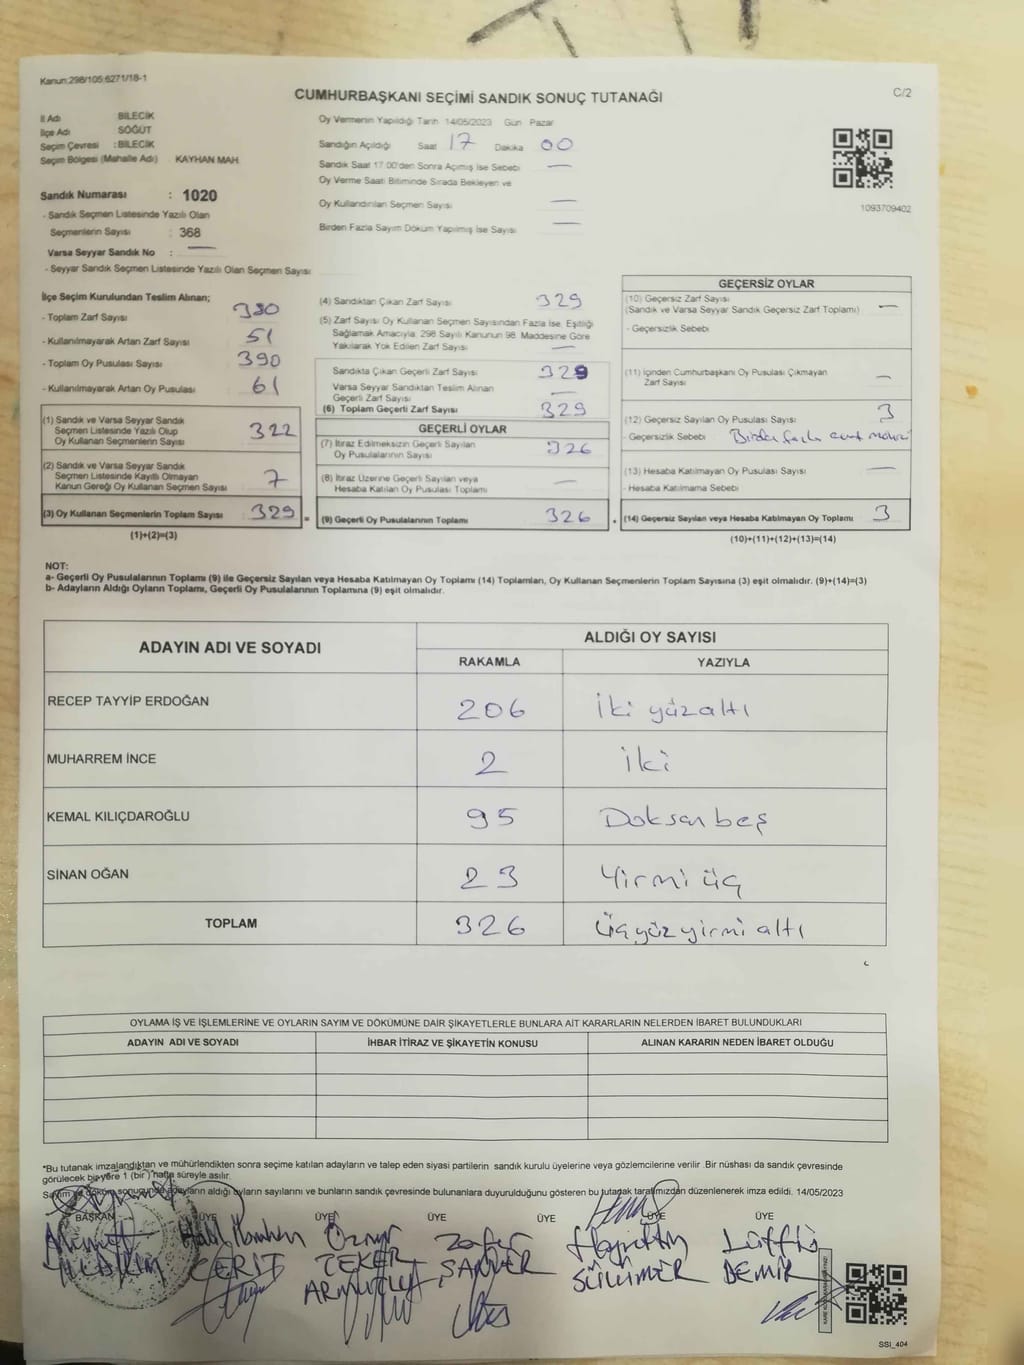 Kanun:298/105:6271/18-1
CUMHURBAŞKANI SEÇİMİ SANDIK SONUÇ TUTANAĞI
C/2
İl Adı BİLECİK
İlçe Adı SÖĞÜT
Seçim Çevresi :BİLECİK
Seçim Bölgesi (Mahalle Adı) KAYHAN MAH.
Oy Vermenin Yapıldığı Tarih 14/05/2023 Gün Pazar
Sandığın Açıldığı Saat 17 Dakika 00
Sandık Saat 17.00'den Sonra Açılmış İse Sebebi —
Oy Verme Saati Bitiminde Sırada Bekleyen ve
Oy Kullandırılan Seçmen Sayısı —
Birden Fazla Sayım Döküm Yapılmış İse Sayısı —
1093709402
Sandık Numarası : 1020
- Sandık Seçmen Listesinde Yazılı Olan
Seçmenlerin Sayısı : 368
Varsa Seyyar Sandık No : —
- Seyyar Sandık Seçmen Listesinde Yazılı Olan Seçmen Sayısı
İlçe Seçim Kurulundan Teslim Alınan;
- Toplam Zarf Sayısı 380
- Kullanılmayarak Artan Zarf Sayısı 51
- Toplam Oy Pusulası Sayısı 390
- Kullanılmayarak Artan Oy Pusulası 61
(1) Sandık ve Varsa Seyyar Sandık
Seçmen Listesinde Yazılı Olup
Oy Kullanan Seçmenlerin Sayısı 322
(2) Sandık ve Varsa Seyyar Sandık
Seçmen Listesinde Kayıtlı Olmayan
Kanun Gereği Oy Kullanan Seçmen Sayısı 7
(3) Oy Kullanan Seçmenlerin Toplam Sayısı 329
(1)+(2)=(3)
(4) Sandıktan Çıkan Zarf Sayısı 329
(5) Zarf Sayısı Oy Kullanan Seçmen Sayısından Fazla İse, Eşitliği
Sağlamak Amacıyla; 298 Sayılı Kanunun 98. Maddesine Göre
Yakılarak Yok Edilen Zarf Sayısı —
Sandıkta Çıkan Geçerli Zarf Sayısı 329
Varsa Seyyar Sandıktan Teslim Alınan
Geçerli Zarf Sayısı —
(6) Toplam Geçerli Zarf Sayısı 329
GEÇERLİ OYLAR
(7) İtiraz Edilmeksizin Geçerli Sayılan
Oy Pusulalarının Sayısı 326
(8) İtiraz Üzerine Geçerli Sayılan veya
Hesaba Katılan Oy Pusulası Toplamı —
(9) Geçerli Oy Pusulalarının Toplamı 326
GEÇERSİZ OYLAR
(10) Geçersiz Zarf Sayısı
(Sandık ve Varsa Seyyar Sandık Geçersiz Zarf Toplamı) —
- Geçersizlik Sebebi
(11) İçinden Cumhurbaşkanı Oy Pusulası Çıkmayan
Zarf Sayısı —
(12) Geçersiz Sayılan Oy Pusulası Sayısı 3
- Geçersizlik Sebebi Birden fazla evet mührü
(13) Hesaba Katılmayan Oy Pusulası Sayısı —
- Hesaba Katılmama Sebebi
(14) Geçersiz Sayılan veya Hesaba Katılmayan Oy Toplamı 3
(10)+(11)+(12)+(13)=(14)
NOT:
a- Geçerli Oy Pusulalarının Toplamı (9) ile Geçersiz Sayılan veya Hesaba Katılmayan Oy Toplamı (14) Toplamları, Oy Kullanan Seçmenlerin Toplam Sayısına (3) eşit olmalıdır. (9)+(14)=(3)
b- Adayların Aldığı Oyların Toplamı, Geçerli Oy Pusulalarının Toplamına (9) eşit olmalıdır.
ADAYIN ADI VE SOYADI
ALDIĞI OY SAYISI
RAKAMLA YAZIYLA
RECEP TAYYİP ERDOĞAN 206 İki yüzaltı
MUHARREM İNCE 2 İki
KEMAL KILIÇDAROĞLU 95 Doksan beş
SİNAN OĞAN 23 Yirmi üç
TOPLAM 326 Üçyüzyirmi altı
OYLAMA İŞ VE İŞLEMLERİNE VE OYLARIN SAYIM VE DÖKÜMÜNE DAİR ŞİKAYETLERLE BUNLARA AİT KARARLARIN NELERDEN İBARET BULUNDUKLARI
ADAYIN ADI VE SOYADI İHBAR İTİRAZ VE ŞİKAYETİN KONUSU ALINAN KARARIN NEDEN İBARET OLDUĞU
*Bu tutanak imzalandıktan ve mühürlendikten sonra seçime katılan adayların ve talep eden siyasi partilerin sandık kurulu üyelerine veya gözlemcilerine verilir .Bir nüshası da sandık çevresinde
görülecek bir yere 1 (bir ) hafta süreyle asılır.
Sayım ve döküm sonucunda adayların aldığı oyların sayılarını ve bunların sandık çevresinde bulunanlara duyurulduğunu gösteren bu tutanak tarafımızdan düzenlenerek imza edildi. 14/05/2023
BAŞKAN ÜYE ÜYE ÜYE ÜYE ÜYE ÜYE
Halil İbrahim Öznur Zafer Hayrettin Lütfi
CERİT TEKER DEMİR
ARMUTLU
SSI_404